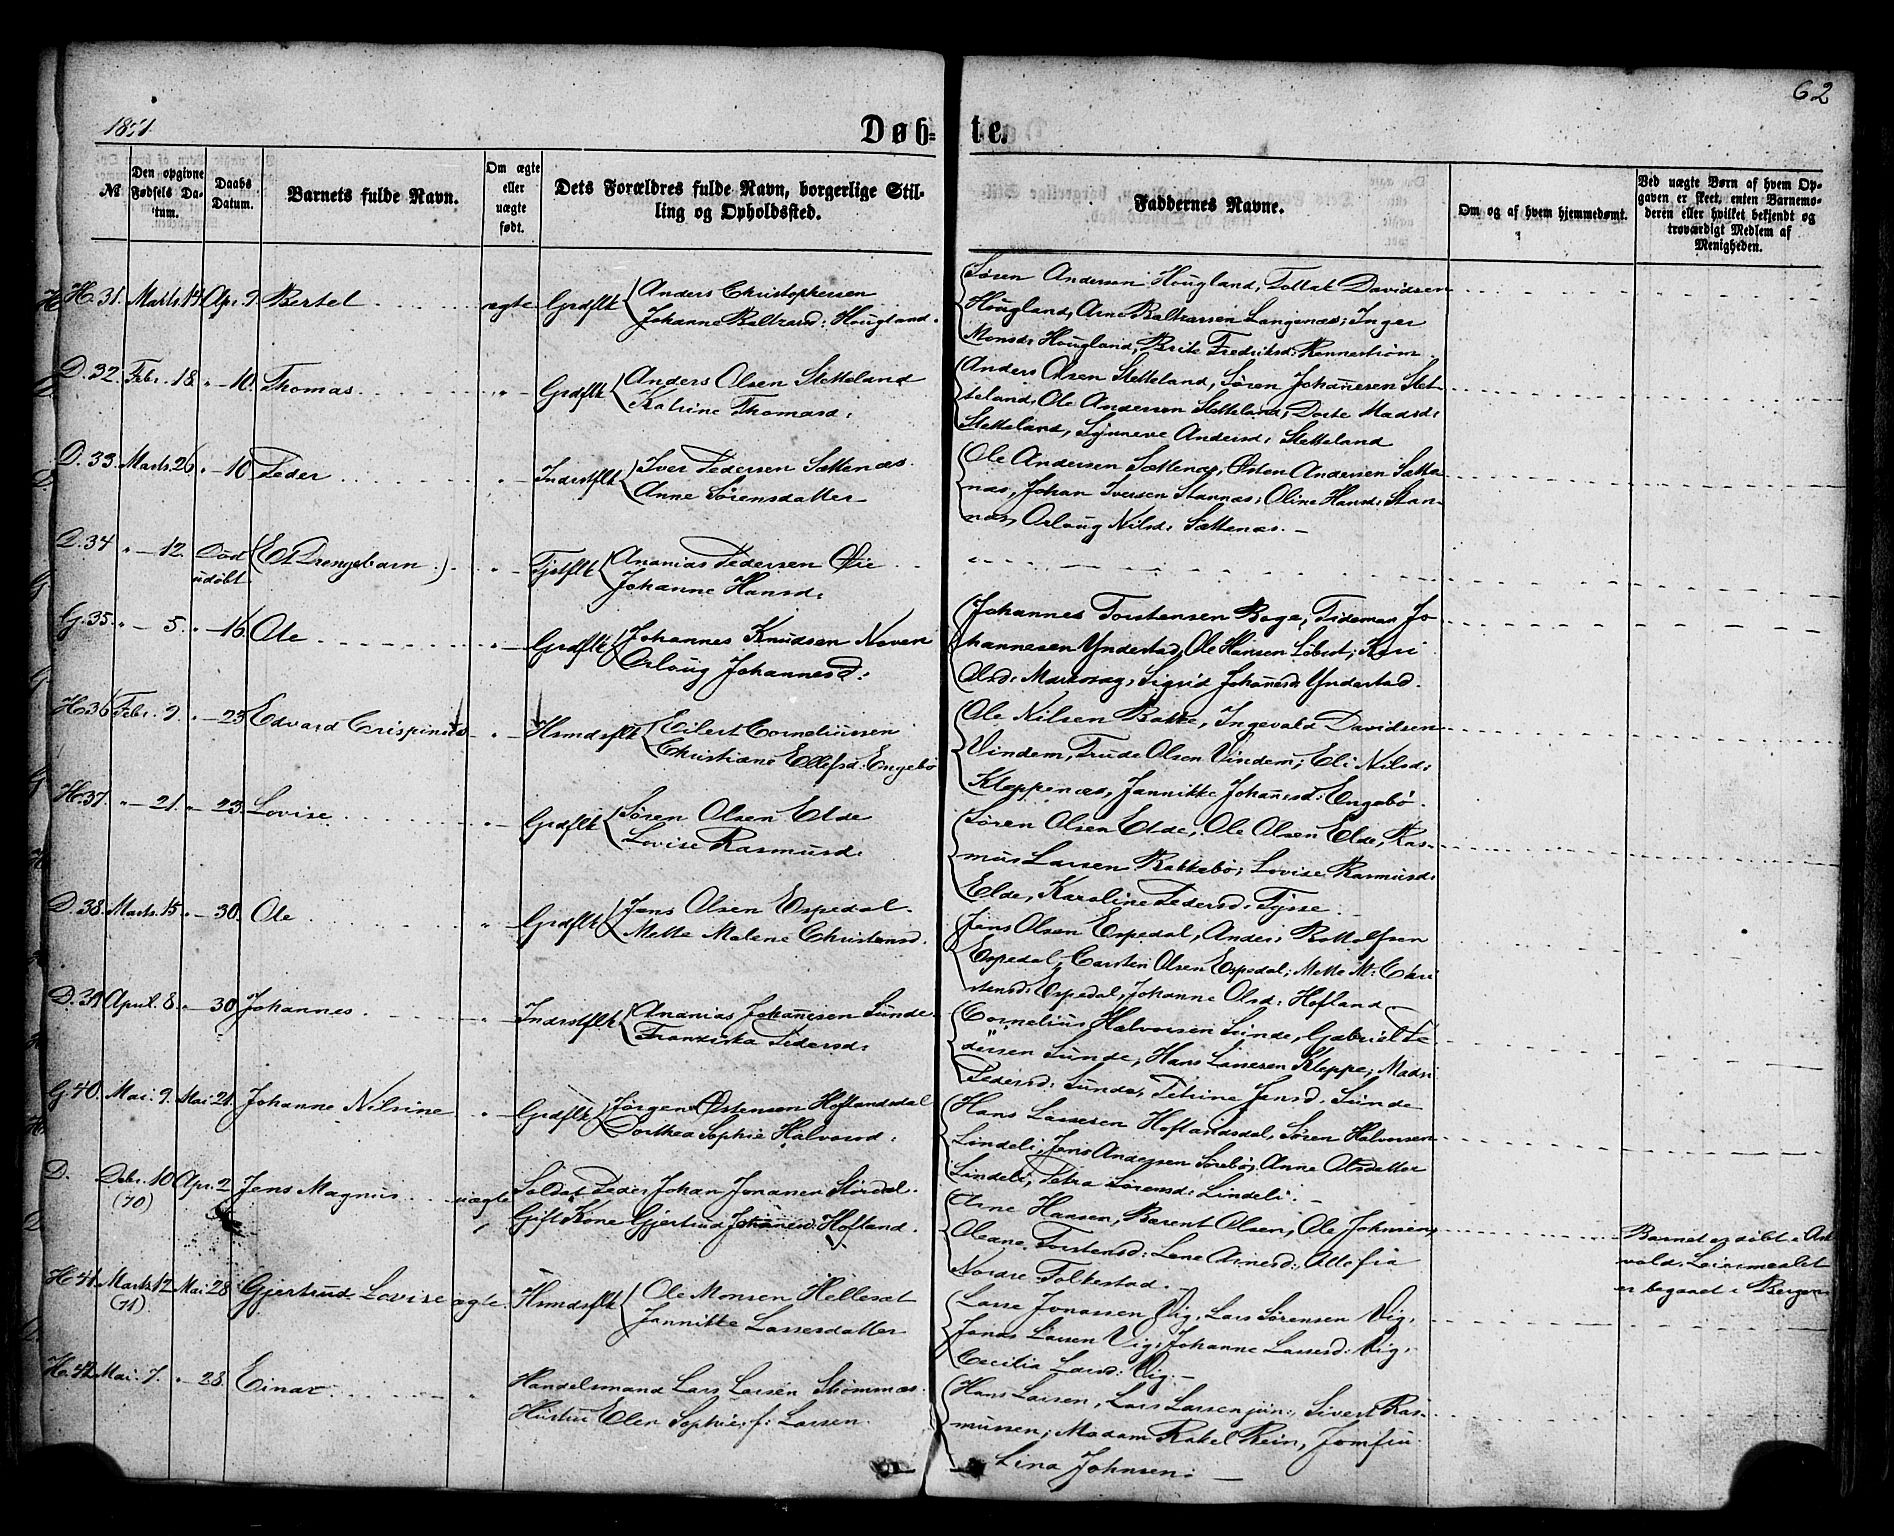 62
1871.
Døbte.
№
Den opgivne Fødsels Datum.
Daabs Datum.
Barnets fulde Navn.
Om ægte eller uægte født.
Dets Forældres fulde Navn, borgerlige Stilling og Opholdssted.
Faddernes Navne.
Om og af hvem hjemmedøbt.
Ved uægte Børn af hvem Opgaven er skeet, enten Barnemoderen eller hvilket bekjendt og troværdigt Medlem af Menigheden.
H. 31. Marts 14 Apr. 9. Bertel ægte Grdflk Anders Christophersen
Johanne Baltzersd: Hougland.
Søren Andersen Hougland, Tollak Davidsen
Hougland, Arne Baltzersen Langenæs; Inger
Monsd: Hougland, Brite Fredriksd: Rennestrøm
D. 32. Febr. 18. " - 10. Thomas " Grdflk Anders Olsen Sletteland
Katrine Thomasd:
Anders Olsen Sletteland, Søren Johanesen Slet-
teland, Ole Andersen Sletteland; Dorte Madsd:
Sletteland, Synneve Andersd: Sletteland
D. 33. Marts 26. " - 10 Peder " Inderstflk Iver Pedersen Sættenæs.
Anne Sørensdatter
Ole Andersen Sættenæs, Østen Andersen Sætte-
næs, Johan Iversen Stannæs; Oline Hansd: Stan-
næs, Orloug Nilsd: Sættenæs. -
D. 34 " - 12. Død udøbt (Et Drengebarn) " Tjstflk Ananias Pedersen Øie
Johanne Hansd:
G. 35. " - 5. " - 16. Ole " Grdflk Johannes Knudsen Naven
Orloug Johannesd:
Johannes Torstensen Boge, Tideman Jo
hannesen Yndestad, Ole Hansen Løbest; Kari
Olsd: Marevag, Sigrid Johanesd: Yndestad.
H. 36 Febr. 9. " - 23 Edvard Crispinius " Hsmdsflk Eilert Corneliussen
Christiane Ellefsd: Engebø
Ole Nilsen Bakke, Ingevald Davidsen
Vindem, Trude Olsen Vindem; Eli Nilsd:
Kleppenæs, Jannikke Johanesd: Engebø.
H. 37. " - 21. " - 23. Lovise " Grdflk Søren Olsen Elde
Lovise Rasmusd:
Søren Olsen Elde, Ole Olsen Elde, Ras-
mus Larsen Bakkebø; Lovise Rasmusd:
Elde, Karoline Pedersd: Tysse.
D. 38. Marts 15. " - 30. Ole " Grdflk Jens Olsen Espedal.
Mette Malene Christensd.
Jens Olsen Espedal, Anders Rottolfsen
Espedal, Carsten Olsen Espedal; Mette M: Chri
stensd: Espedal, Johanne Olsd: Hofland
D. 39 April. 8. " - 30 Johannes " Inderstflk Ananias Johanesen Sunde.
Franziska Pedersd:
Cornelius Halvorsen Sunde, Gabriel Pe
dersen Sunde, Hans Lassesen Kleppe; Madsi
Pedersd: Sunde, Petrine Jensd. Sunde
G. 40. Mai. 9. Mai. 21. Johanne Nilsine " Grdflk Jørgen Østensen Hoflandsdal
Dorthea Sophie Halvorsd:
Hans Lassesen Hoflandsdal, Søren Halvorsen
Lindeli, Jens Andersen Sørebø; Anne Olsdatter
Lindeli, Petra Sørensd: Lindeli. -
D. Debr. 10 (70) Apr. 2 Jens Magnus uægte Soldat Peder Johan Jonasen Stordal.
Gift Kone Gjertrud Johanesd: Hofland.
Arne Hansen, Barent Olsen, Ole Johnsen;
Oleane Torstensd: Lene Arnesd:, Alle fra
Nordre Folkestad. -
Barnet er døbt i
vold; Leiermaalet
er begaaet i Bergen
H. 41. Marts 12 (71) Mai 28. Gjertrud Lovise ægte. Hsmdsflk Ole Monsen Hellesæt
Jannikke Lassesdatter
Lasse Jonassen Vig, Lars Sørensen Vig,
Jonas Lassen Vig; Johanne Lassesd: Vig,
Cecilia Larsd: Vig. -
H. 42 Mai. 7. " - 28. Einar " Handelsmand Lars Larsen Strømmæs.
Hustru Elen Sophie f: Larsen
Hans Larsen, Lars Larsen jun:, Sivert Ras-
mussen; Madam Rakel Rein, Jomfru
Lina Johnsen: -